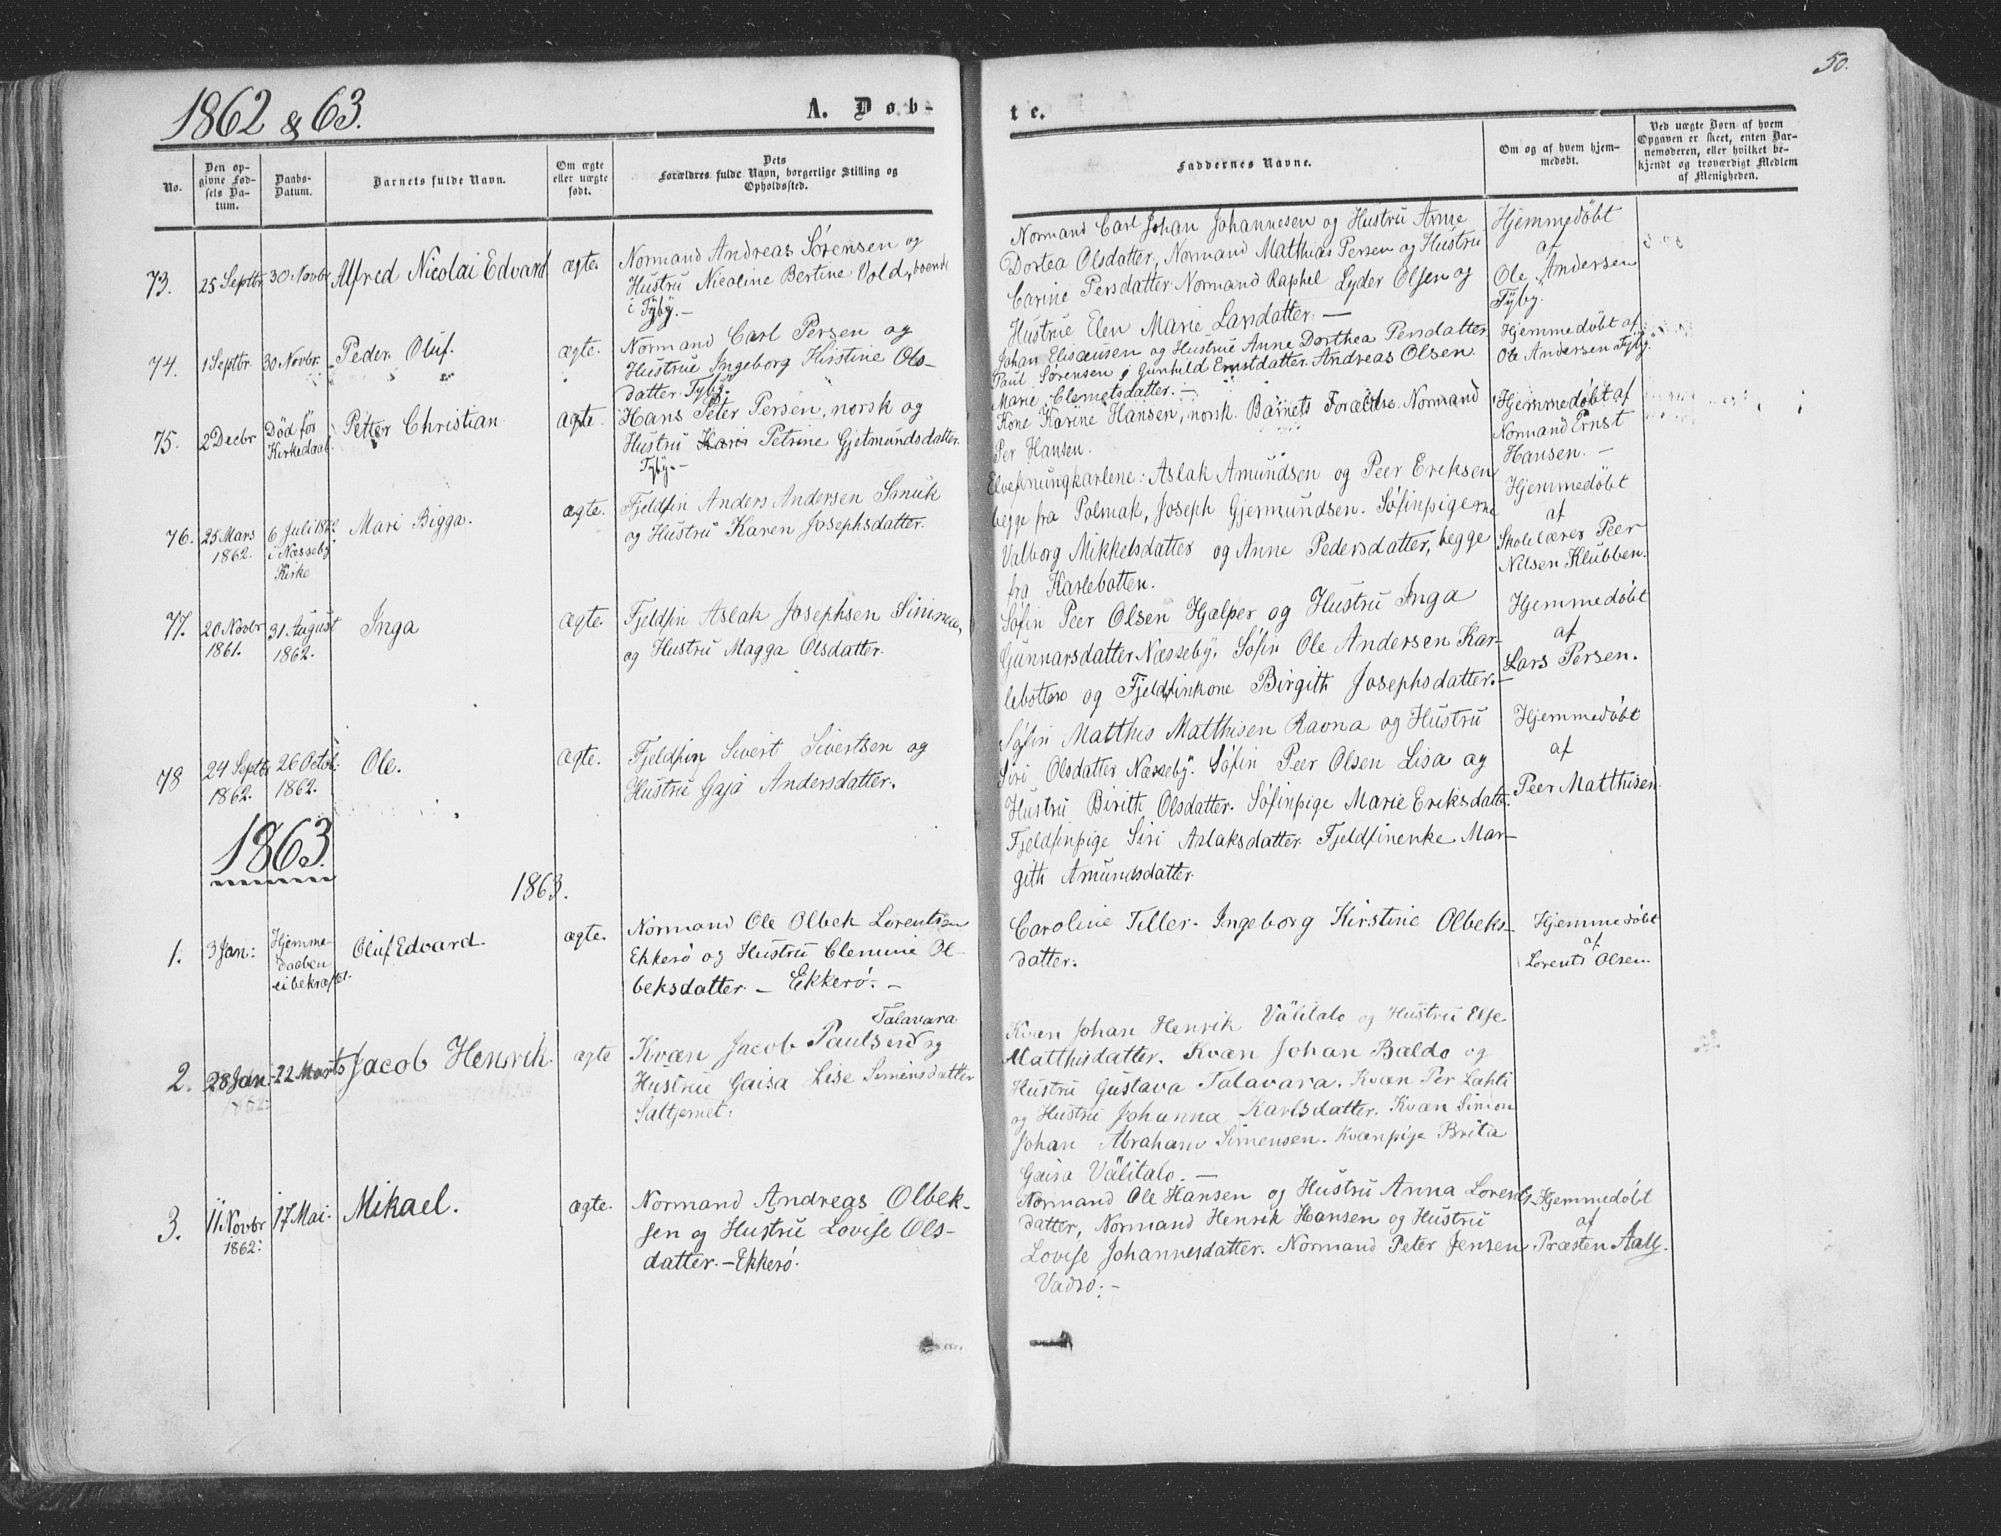 50.
1862 & 63.
A. Døb-
te.
No.
Den op-
givne Fød-
sels Da-
tum.
Daabs-
Datum.
Barnets fulde Navn.
Om ægte
eller uægte
født.
Dets
Forældres fulde Navn, borgerlige Stilling og
Opholdssted.
Faddernes Navne.
Om og af hvem hjem-
medøbt.
Ved uægte Børn af hvem
Opgaven er skeet, enten Bar-
nemoderen, eller hvilket be-
kjendt og troværdigt Medlem
af Menigheden.
73.
25 Septbr
30 Novbr
Alfred Nicolai Edvard
ægte.
Normand Andreas Sørensen og
Hustru Nicoline Bertine Vold, boende
i Tyby. -
Normand Carl Johan Johannesen og Hustru Anne
Dortea Olsdatter, Normand Matthias Persen og Hustru
Carine Persdatter. Normand Raphel Lyder Olsen og
Hustrue Elen Marie Larsdatter. -
Hjemmedøbt
af
Ole Andersen
Tyby.
74.
1 Septbr.
30 Novbr.
Peder Oluf.
ægte.
Normand Carl Persen og
Hustrue Ingeborg Kirstine Ols-
datter. Tyby.
Johan Elisæusen og Hustrue Anne Dorthea Persdatter
Paul Sørensen, Gunhild Ernstdatter. Andreas Olsen
Marie Clemetsdatter. -
Hjemmedøbt af
Ole Andersen Tyby.
75.
2 Decbr
Død før
Kirkedaab.
Petter Christian
ægte.
Hans Peter Persen, norsk og
Hustru Karis Petrine Gjetmundsdatter.
Tyby. -
Kone Karine Hansen, norsk. Barnets Forældre. Normand
Per Hansen.
Hjemmedøbt af
Normand Ernst
Hansen. -
76.
25 Mars
1862.
6 Juli 1862
i Næsseby
Kirke
Mari Bigga.
ægte.
Fjeldfin Anders Andersen Smuk
og Hustru Karen Josephsdatter.
Elvefinungkarlene: Aslak Amundsen og Peer Eriksen
begge fra Polmak, Joseph Gjermundsen. Søfinpigerne
Valborg Mikkelsdatter og Anne Pedersdatter, begge
fra Karlebotten.
Hjemmedøbt
af
Skolelærer Peer
Nilsen Klubben.
77.
20 Novbr
1861.
31 August
1862.
Inga
ægte.
Fjeldfin Aslak Josephsen Sirma,
og Hustru Magga Olsdatter.
Søfin Peer Olsen Hjælper og Hustru Inga
Gunnarsdatter Næsseby. Søfin Ole Andersen Kar-
lebotten og Fjeldfinkone Birgith Josephsdatter. -
Hjemmedøbt
af
Lars Persen.
78
24 Septbr
1862.
26 Octob:
1862.
Ole.
ægte.
Fjeldfin Sivert Sivertsen og
Hustru Gaja Andersdatter.
Søfin Matthis Matthisen Ravna og Hustru
Siri Olsdatter Næsseby. Søfin Peer Olsen Lisa og
Hustru Birith Olsdatter. Søfinpige Marie Eriksdatt.
Fjeldfinpige Siri Aslaksdatter. Fjeldfinenke Mar-
gith Amundsdatter.
Hjemmedøbt
af
Peer Matthisen
1863.
1863.
1.
3 Jan:
Hjemme-
daaben
ei bekræftet.
Oluf Edvard.
ægte.
Normand Ole Olbek Lorentsen
Ekkerø og Hustru Clemine Ol-
beksdatter - Ekkerø. -
Caroline Tiller. Ingeborg Kirstine Olbeks-
datter.
Hjemmedøbt
af
Lorents Olsen.
2.
28 Jan:
1862:
22 Marts
Jacob Henrik.
ægte
Talavara
Kvæn Jacob Paulsen og
Hustrue Gaisa Lise Simensdatter
Saltjernet.
Kvæn Johan Henrik Välitalo og Hustru Else
Matthisdatter. Kvæn Johan Baldo og
Hustru Gustava Talavara. Kvæn Per Lahti
og Hustru Johanna Karlsdatter. Kvæn Simon
Johan Abraham Simensen. Kvænpige Brita
Gaisa Välitalo. -
3.
11 Novbr
1862:
17 Mai.
Mikael.
ægte.
Normand Andreas Olbek-
sen og Hustru Lovise Ols-
datter. - Ekkerø.
Normand Ole Hansen og Hustru Anna Lorents-
datter, Normand Henrik Hansen og Hustru
Lovise Johannesdatter. Normand Peter Jensen
Vadsø. -
Hjemmedøbt
af
Præsten Aall.